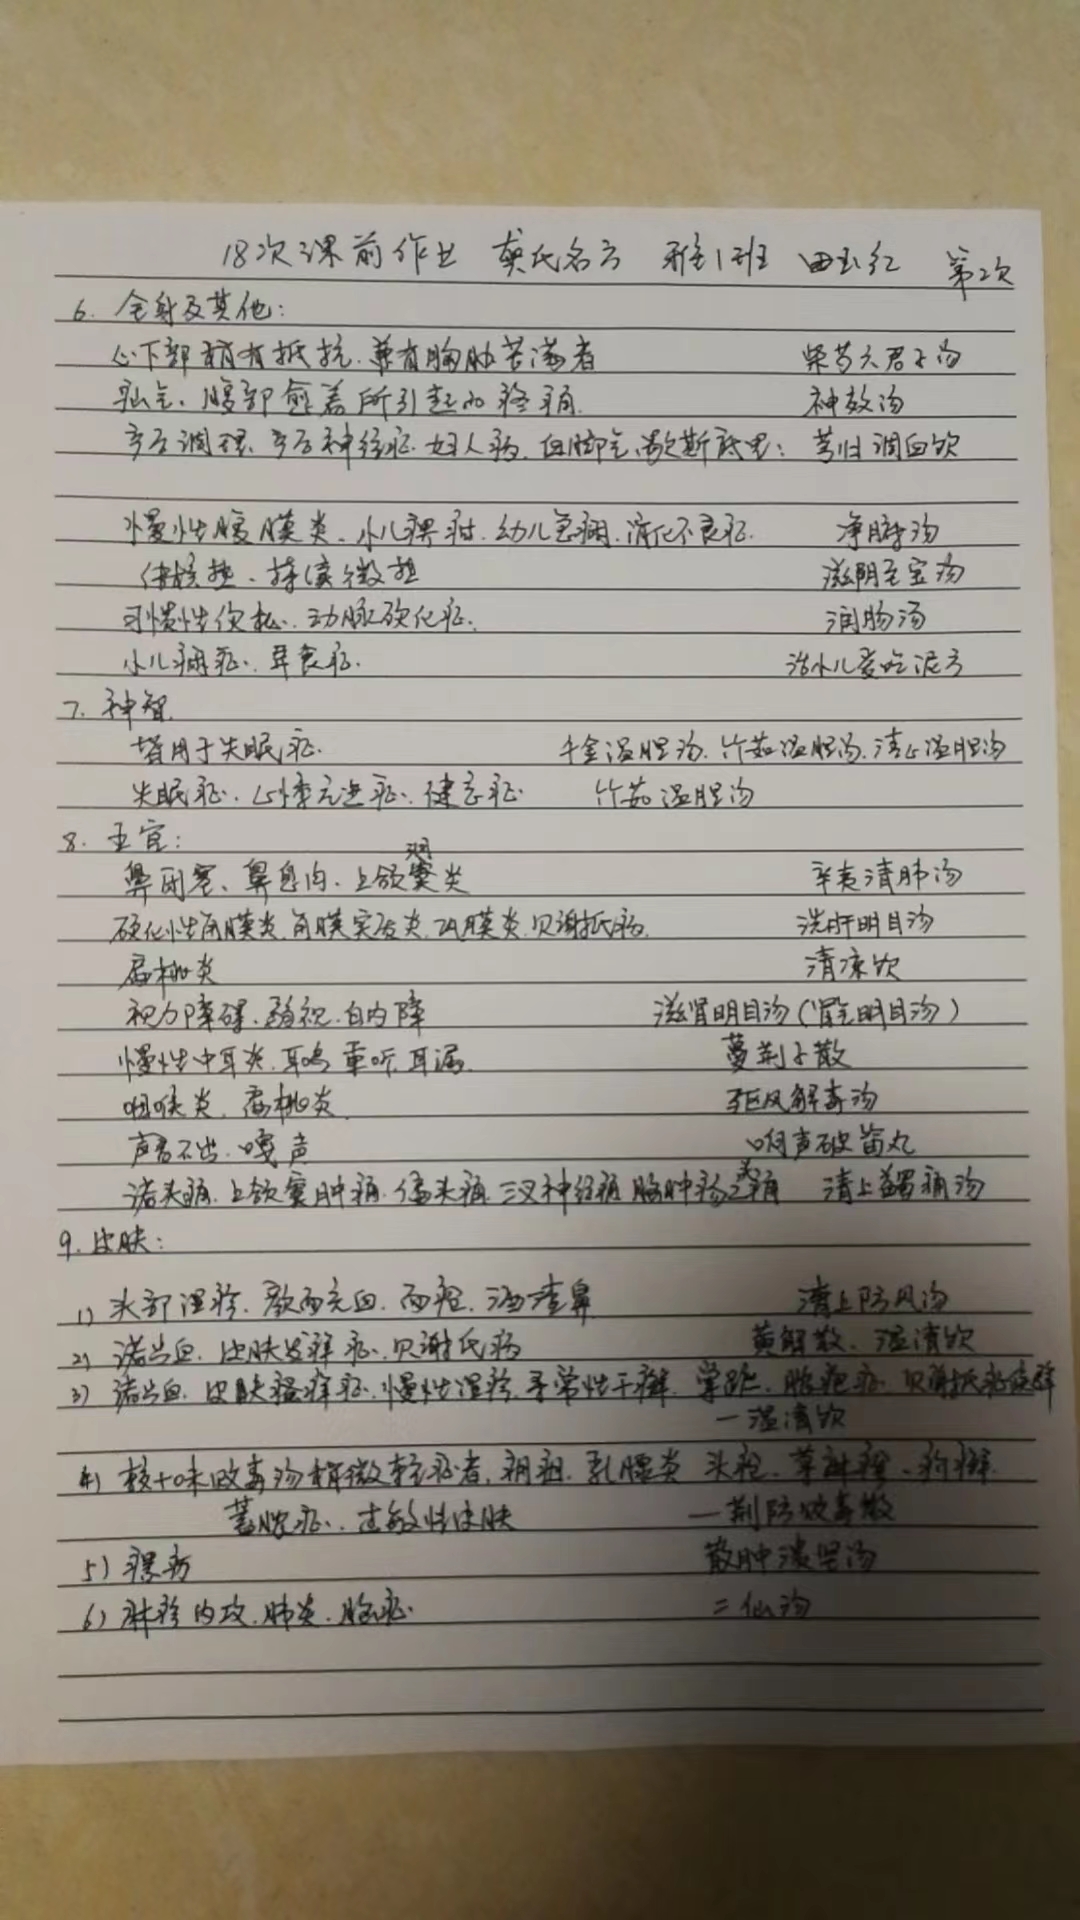 18次课前作业 龚氏名方 雅1班 田玉红 第2次
6. 全身及其他:
心下部稍有抵抗、兼有胸胁苦满者 柴芍六君子汤
疝气、腹部愈着所引起的疼痛 神效汤
产后调理、产后神经症、妇人病、血脚气、歇斯底里: 芎归调血饮
慢性腹膜炎、小儿脾疳、幼儿急痫、消化不良症 净腑汤
体核热、持续微热 滋阴至宝汤
习惯性便秘、动脉硬化症 润肠汤
小儿疳症、异食症 治小儿爱吃泥方
7. 神智
皆用于失眠症 千金温胆汤、竹茹温胆汤、清心温胆汤
失眠症、心悸亢进症、健忘症 竹茹温胆汤
8. 五官:
鼻闭塞、鼻息肉、上颌窦炎 辛夷清肺汤
硬化性角膜炎、角膜实质炎、巩膜炎、贝谢抵病 洗肝明目汤
扁桃炎 清凉饮
视力障碍、弱视、白内障 滋肾明目汤(肾气明目汤)
慢性中耳炎、耳鸣 重听、耳漏 蔓荆子散
咽喉炎、扁桃炎 驱风解毒汤
声音不出、嘎声 响声破笛丸
诸头痛、上颌窦肿痛、偏头痛、三叉神经痛 脑肿疡之头痛 清上蠲痛汤
9. 皮肤:
1) 头部湿疹、颜面充血、面疱、酒渣鼻 清上防风汤
2) 诸出血、皮肤发痒症、贝谢氏病 黄解散、温清饮
3) 诸出血、皮肤瘙痒症、慢性湿疹、寻常性干癣、掌跖脓疱症、贝谢抵症候群
一温清饮
4) 较十味败毒汤稍微轻症者、痈疽、乳腺炎 头疮、荨麻疹、疥癣
蓄脓症、过敏性皮肤 一荆防败毒散
5) 瘰疬 散肿溃坚汤
6) 麻疹内攻、肺炎、脑症 二仙汤